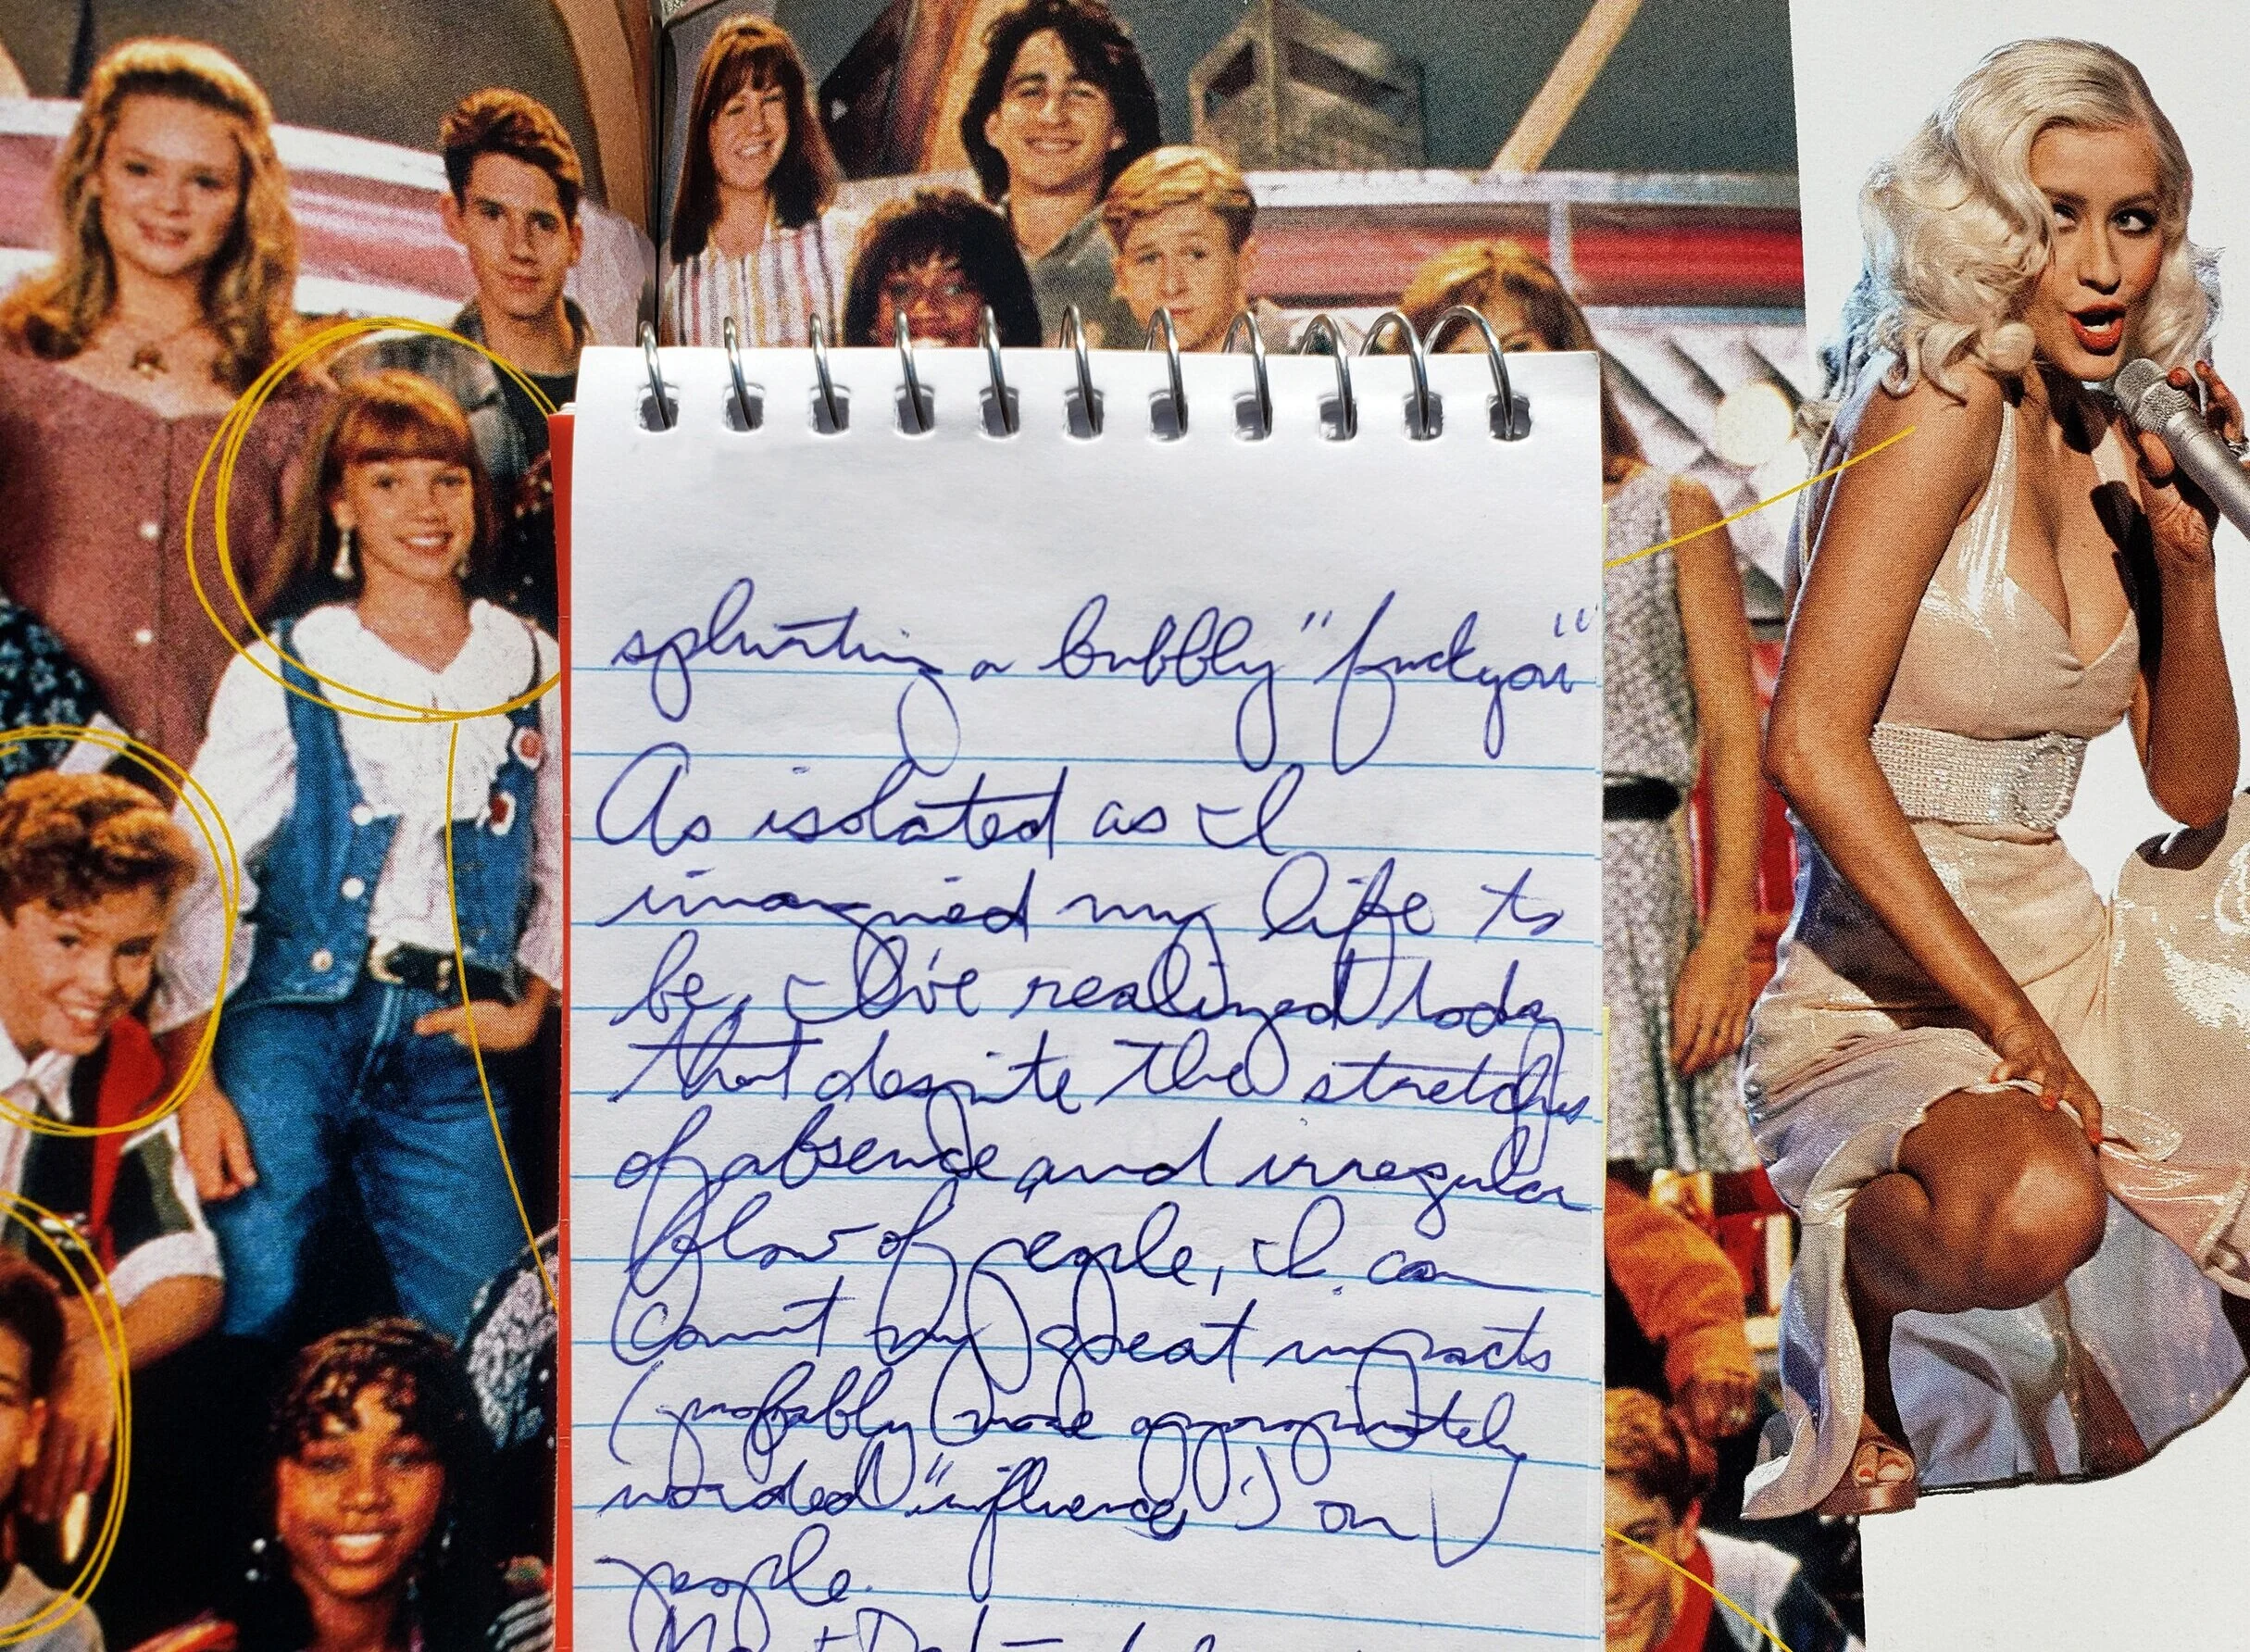 splurting a bubbly "fuck you"
As isolated as I
imagined my life to
be, I've realized today
that despite the stretches
of absence and irregular
flow of people, I can
count my great impacts
(probably more appropriately
worded "influence") on
people.